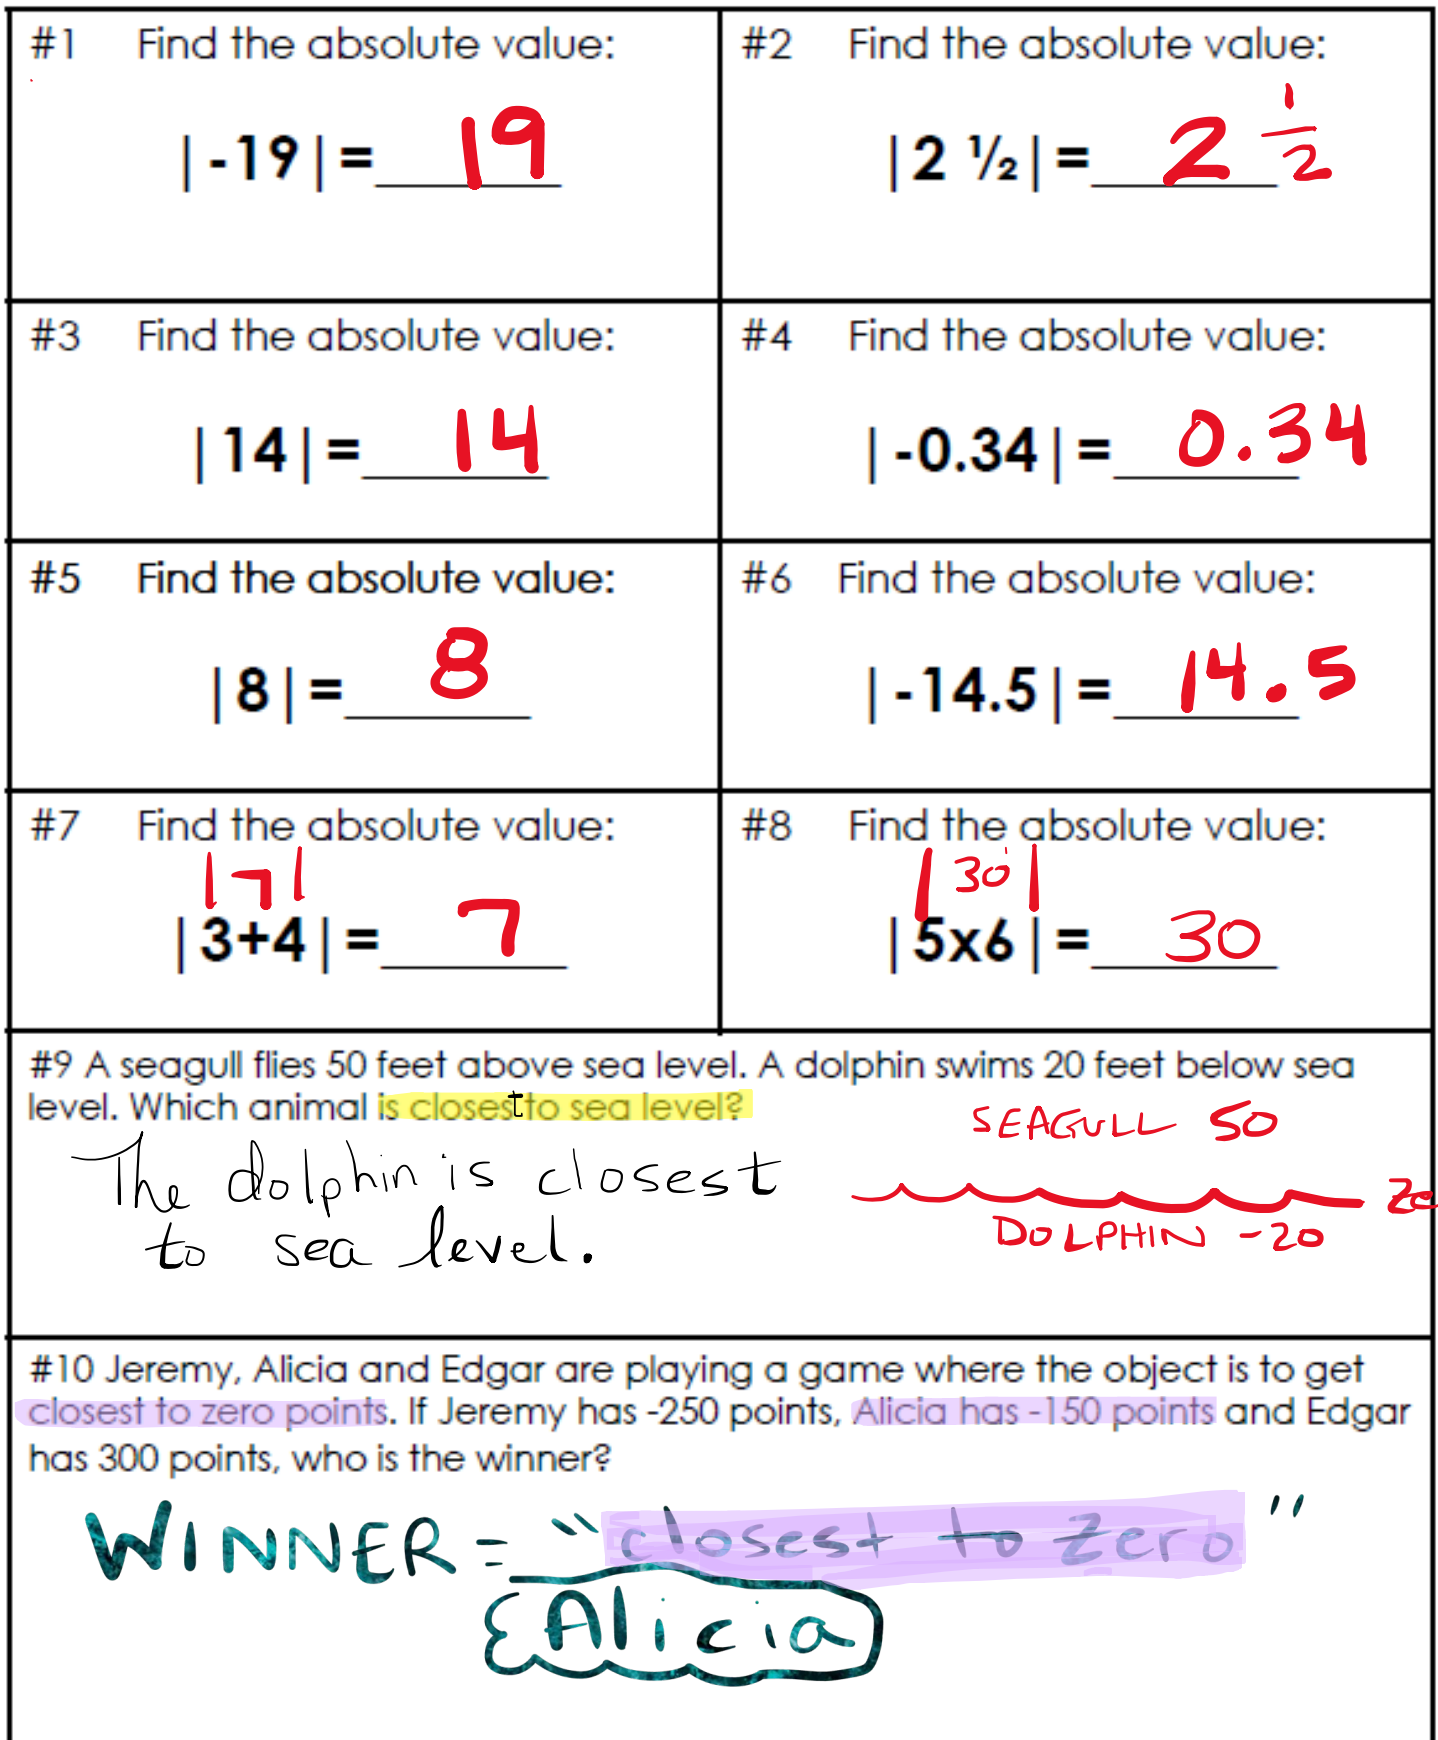 #1 Find the absolute value:
|-19|= 19
#2 Find the absolute value:
|2 ½|= 2 1/2
#3 Find the absolute value:
|14|= 14
#4 Find the absolute value:
|-0.34|= 0.34
#5 Find the absolute value:
|8|= 8
#6 Find the absolute value:
|-14.5|= 14.5
#7 Find the absolute value:
|7|
|3+4|= 7
#8 Find the absolute value:
|30|
|5x6|= 30
#9 A seagull flies 50 feet above sea level. A dolphin swims 20 feet below sea
level. Which animal is closest to sea level?
SEAGULL 50
The dolphin is closest
to sea level.
Ze
DOLPHIN -20
#10 Jeremy, Alicia and Edgar are playing a game where the object is to get
closest to zero points. If Jeremy has -250 points, Alicia has -150 points and Edgar
has 300 points, who is the winner?
WINNER = "closest to zero"
Alicia